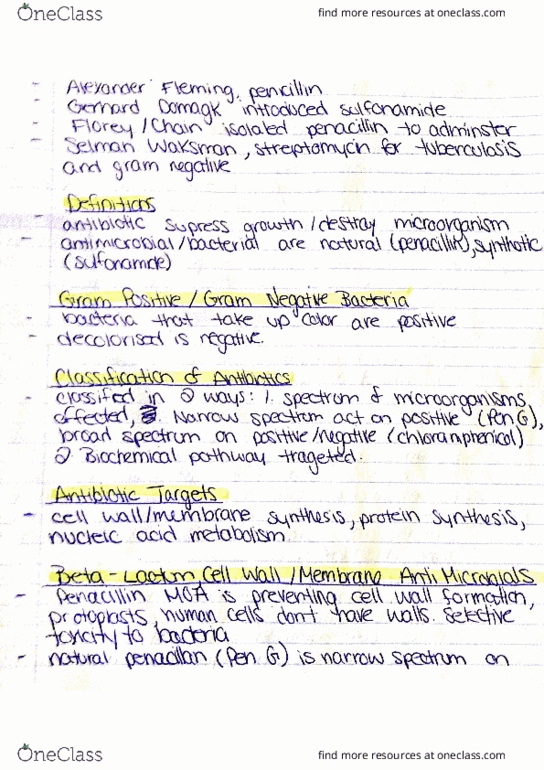 OneClass find more resources at oneclass.com
- Alexander Fleming, penicillin
- Gerhard Domagk introduced sulfonamide
- Florey/Chain isolated penacillin to adminster
- Selman Waksman, streptomycin for tuberculosis
and gram negative
Definitions
- antibiotic supress growth/destray microorganism
- antimicrobial/bacterial are natural (penacillin), synthetic
(sulfonamide)
Gram Positive / Gram Negative Bacteria
- bacteria that take up color are positive
- decolorised is negative.
Classification of Antibiotics
- classified in 2 ways: 1. spectrum of microorganisms,
affected, Narrow spectrum act on positive (Pen G),
broad spectrum on positive/negative (chloramphenicol)
2 Biochemical pathway trageted.
Antibiotic Targets
- cell wall/membrane synthesis, protein synthesis,
nucleic acid metabolism.
Beta-Lactum Cell Wall/Membrane Anti Microbials
- Penacillin MOA is preventing cell wall formation,
protoplasts, human cells don't have walls. Selective
toxicity to bacteria
- natural penacillan (Pen G) is narrow spectrum on
OneClass find more resources at oneclass.com